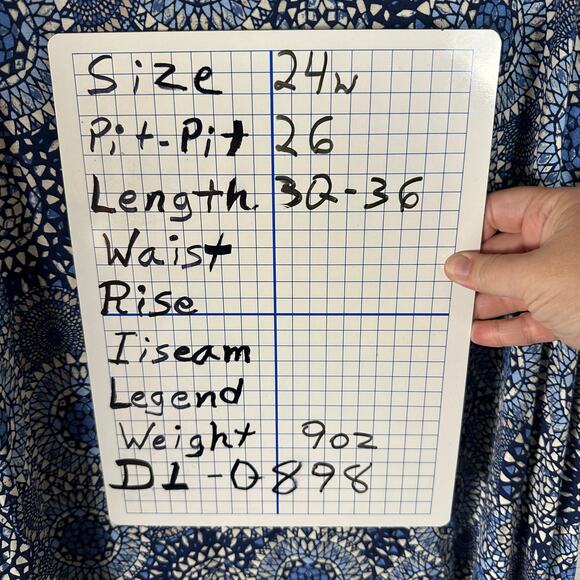 Size 24w
Pit-Pit 26
Length 30-36
Waist
Rise
Iiseam
Legend
Weight 9oz
D1-0898